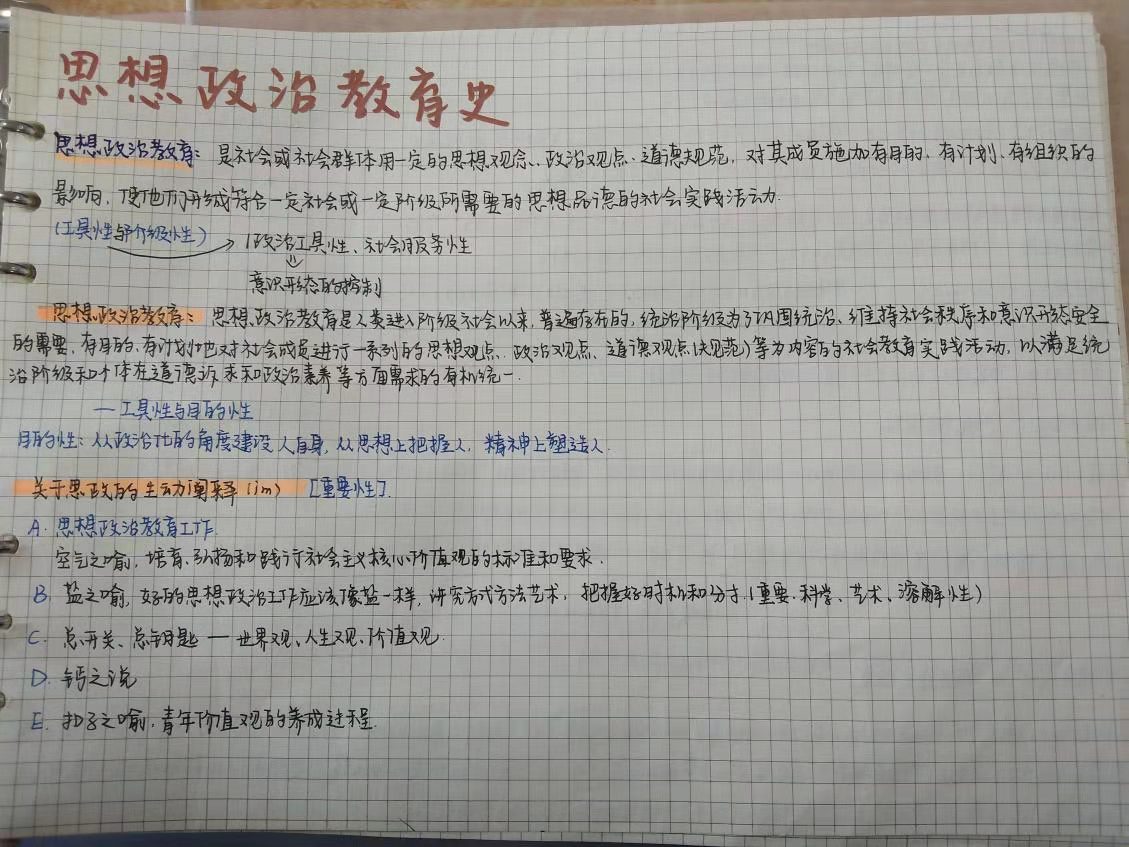 思想政治教育史
思想政治教育：是社会或社会群体用一定的思想观念、政治观点、道德规范，对其成员施加有目的、有计划、有组织的
影响，使他们形成符合一定社会或一定阶级所需要的思想品德的社会实践活动.
(工具性与阶级性) → (政治工具性、社会服务性
意识形态的控制
思想政治教育：思想政治教育是人类进入阶级社会以来，普遍存在的，统治阶级为了巩固统治、维持社会秩序和意识形态安全
的需要，有目的、有计划地对社会成员进行一系列的思想观点、政治观点、道德观点(规范)等为内容的社会教育实践活动，以满足统
治阶级和个体在道德诉求和政治素养等方面需求的有机统一.
— 工具性与目的性
目的性：从政治化的角度建设人自身，从思想上把握人，精神上塑造人.
关于思政的生动阐释(im) [重要性].
A. 思想政治教育工作.
空气之喻，培育、弘扬和践行社会主义核心价值观的标准和要求.
B. 盐之喻，好的思想政治工作应该像盐一样，讲究方式方法艺术，把握好时机和分寸.(重要、科学、艺术、溶解性)
C. 总开关、总钥匙 — 世界观、人生观、价值观.
D. 钙之说
E. 扣子之喻，青年价值观的养成过程.